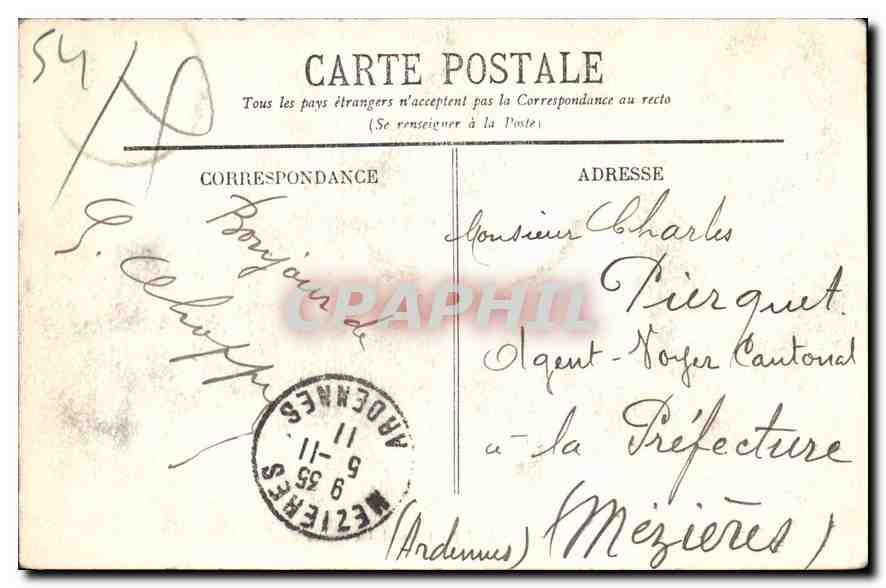 54
CARTE POSTALE
Tous les pays étrangers n'acceptent pas la Correspondance au recto
(Se renseigner à la Poste)
CORRESPONDANCE
Bonjour de
G.
ADRESSE
Monsieur Charles
Pierquet.
Agent-Voyer Cantonal
à la Préfecture
(Ardennes) (Mézières)
MEZIERES
9 35
5 -11
11
ARDENNES
CPAPHIL